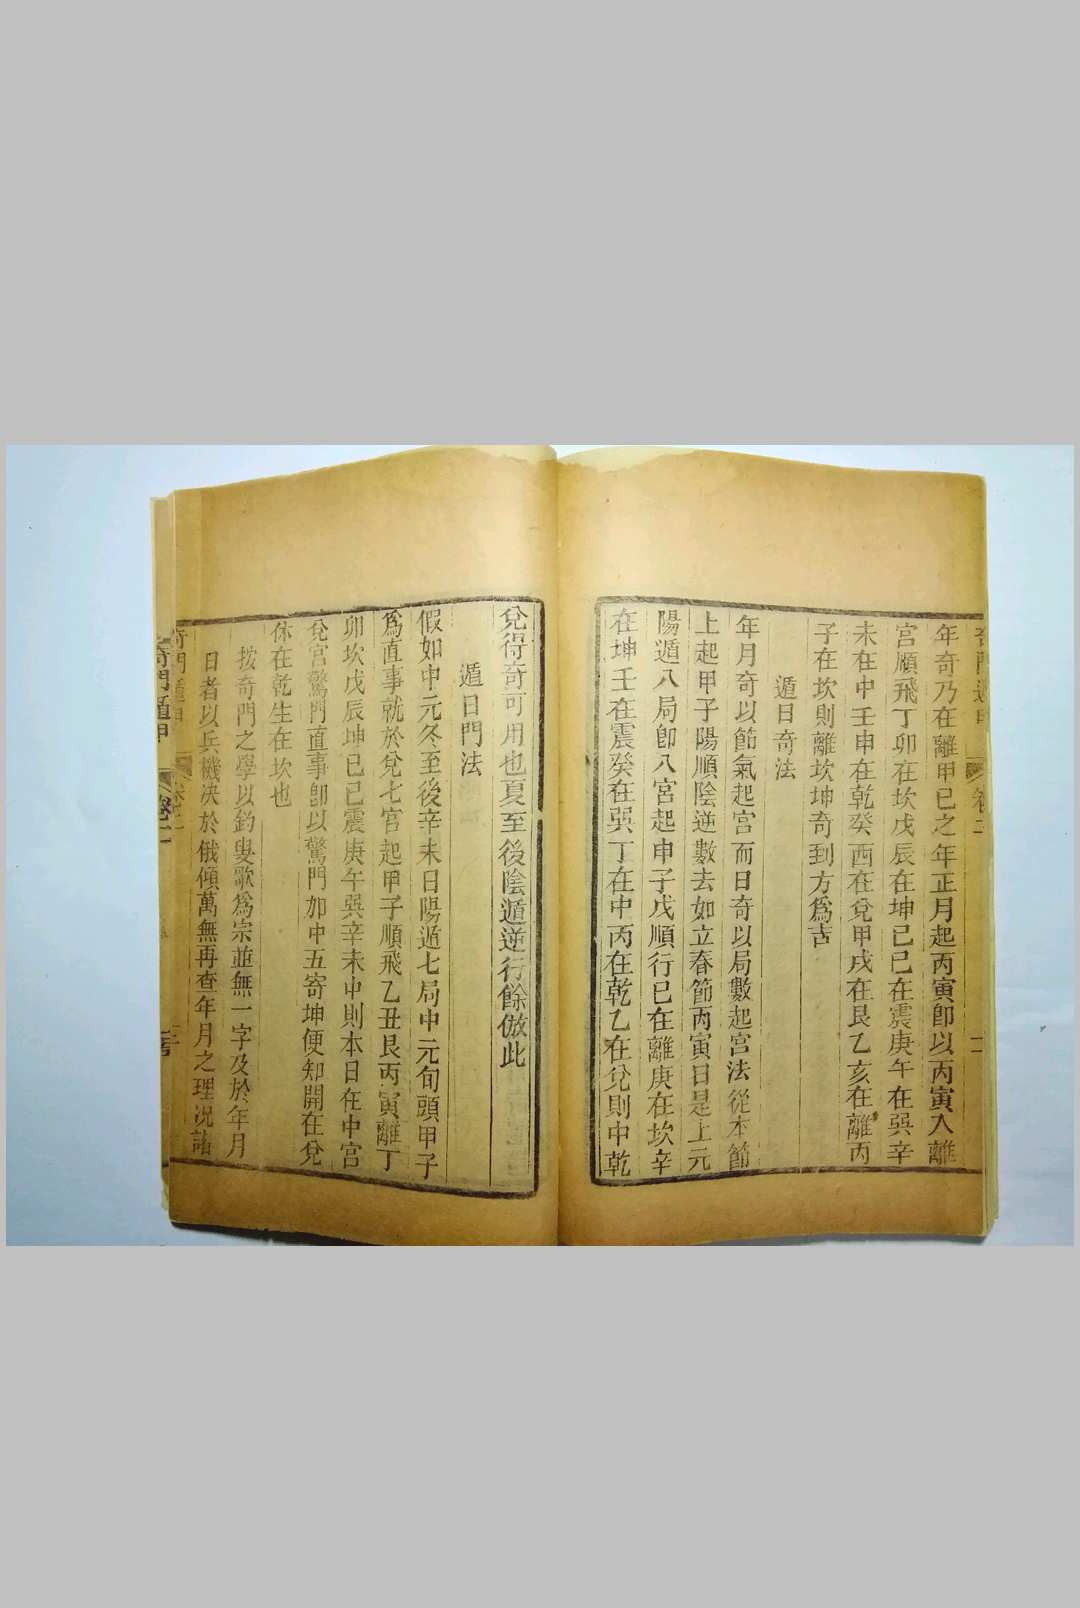 年奇乃在離甲己之年正月起丙寅卽以丙寅入離
宮順飛丁卯在坎戊辰在坤己巳在震庚午在巽辛
未在中壬申在乾癸酉在兌甲戌在艮乙亥在離丙
子在坎則離坎坤奇到方爲吉
遁日奇法
年月奇以節氣起宮而日奇以局數起宮法從本節
上起甲子陽順陰逆數去如立春節丙寅日是上元
陽遁八局卽八宮起甲子戊順行己在離庚在坎辛
在坤壬在震癸在巽丁在中丙在乾乙在兌則中乾
兌得奇可用也夏至後陰遁逆行餘倣此
遁日門法
假如中元冬至後辛未日陽遁七局中元旬頭甲子
爲直事就於兌七宮起甲子順飛乙丑艮丙寅離丁
卯坎戊辰坤己巳震庚午巽辛未中則本日在中宮
兌宮驚門直事卽以驚門加中五寄坤便知開在兌
休在乾生在坎也
按奇門之學以釣叟歌爲宗並無一字及於年月
日者以兵機決於俄傾萬無再查年月之理況諸
奇門遁甲
卷二